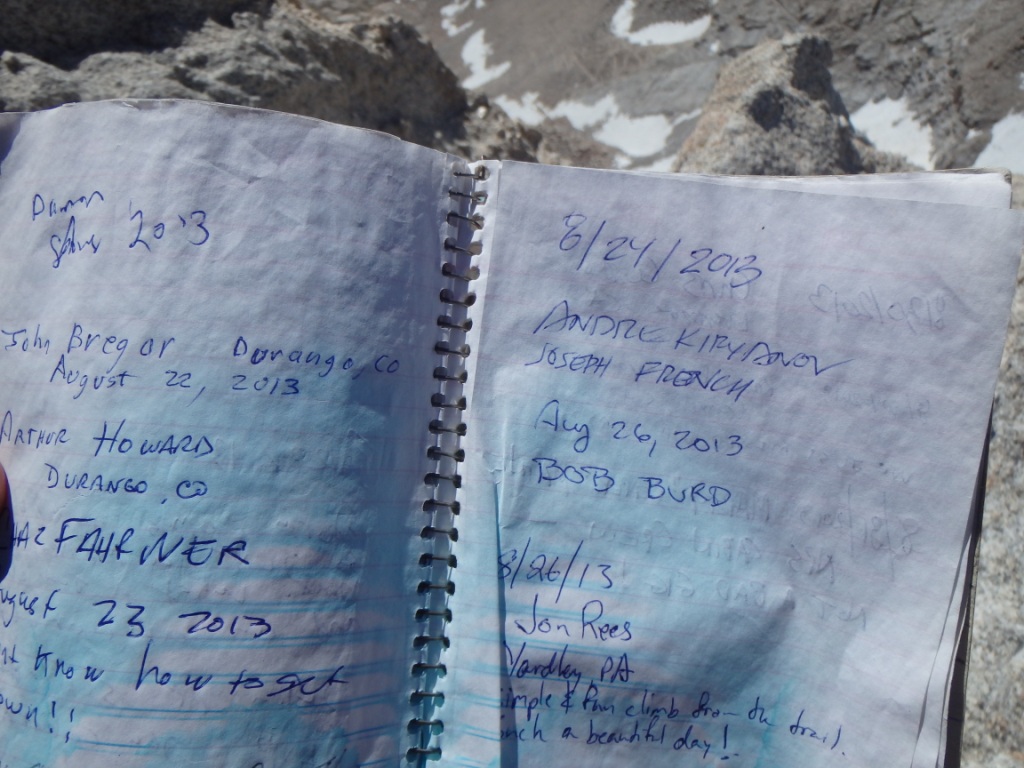 2013
John Bregar Durango, CO
August 22, 2013
ARTHUR HOWARD
DURANGO, CO
FAHRNER
23 2013
Know how to get
8/24/2013
ANDRE KIRYANOV
JOSEPH FRENCH
Aug 26, 2013
BOB BURD
8/26/13
Jon Rees
Yardley, PA
& fun climb from the trail.
a beautiful day!